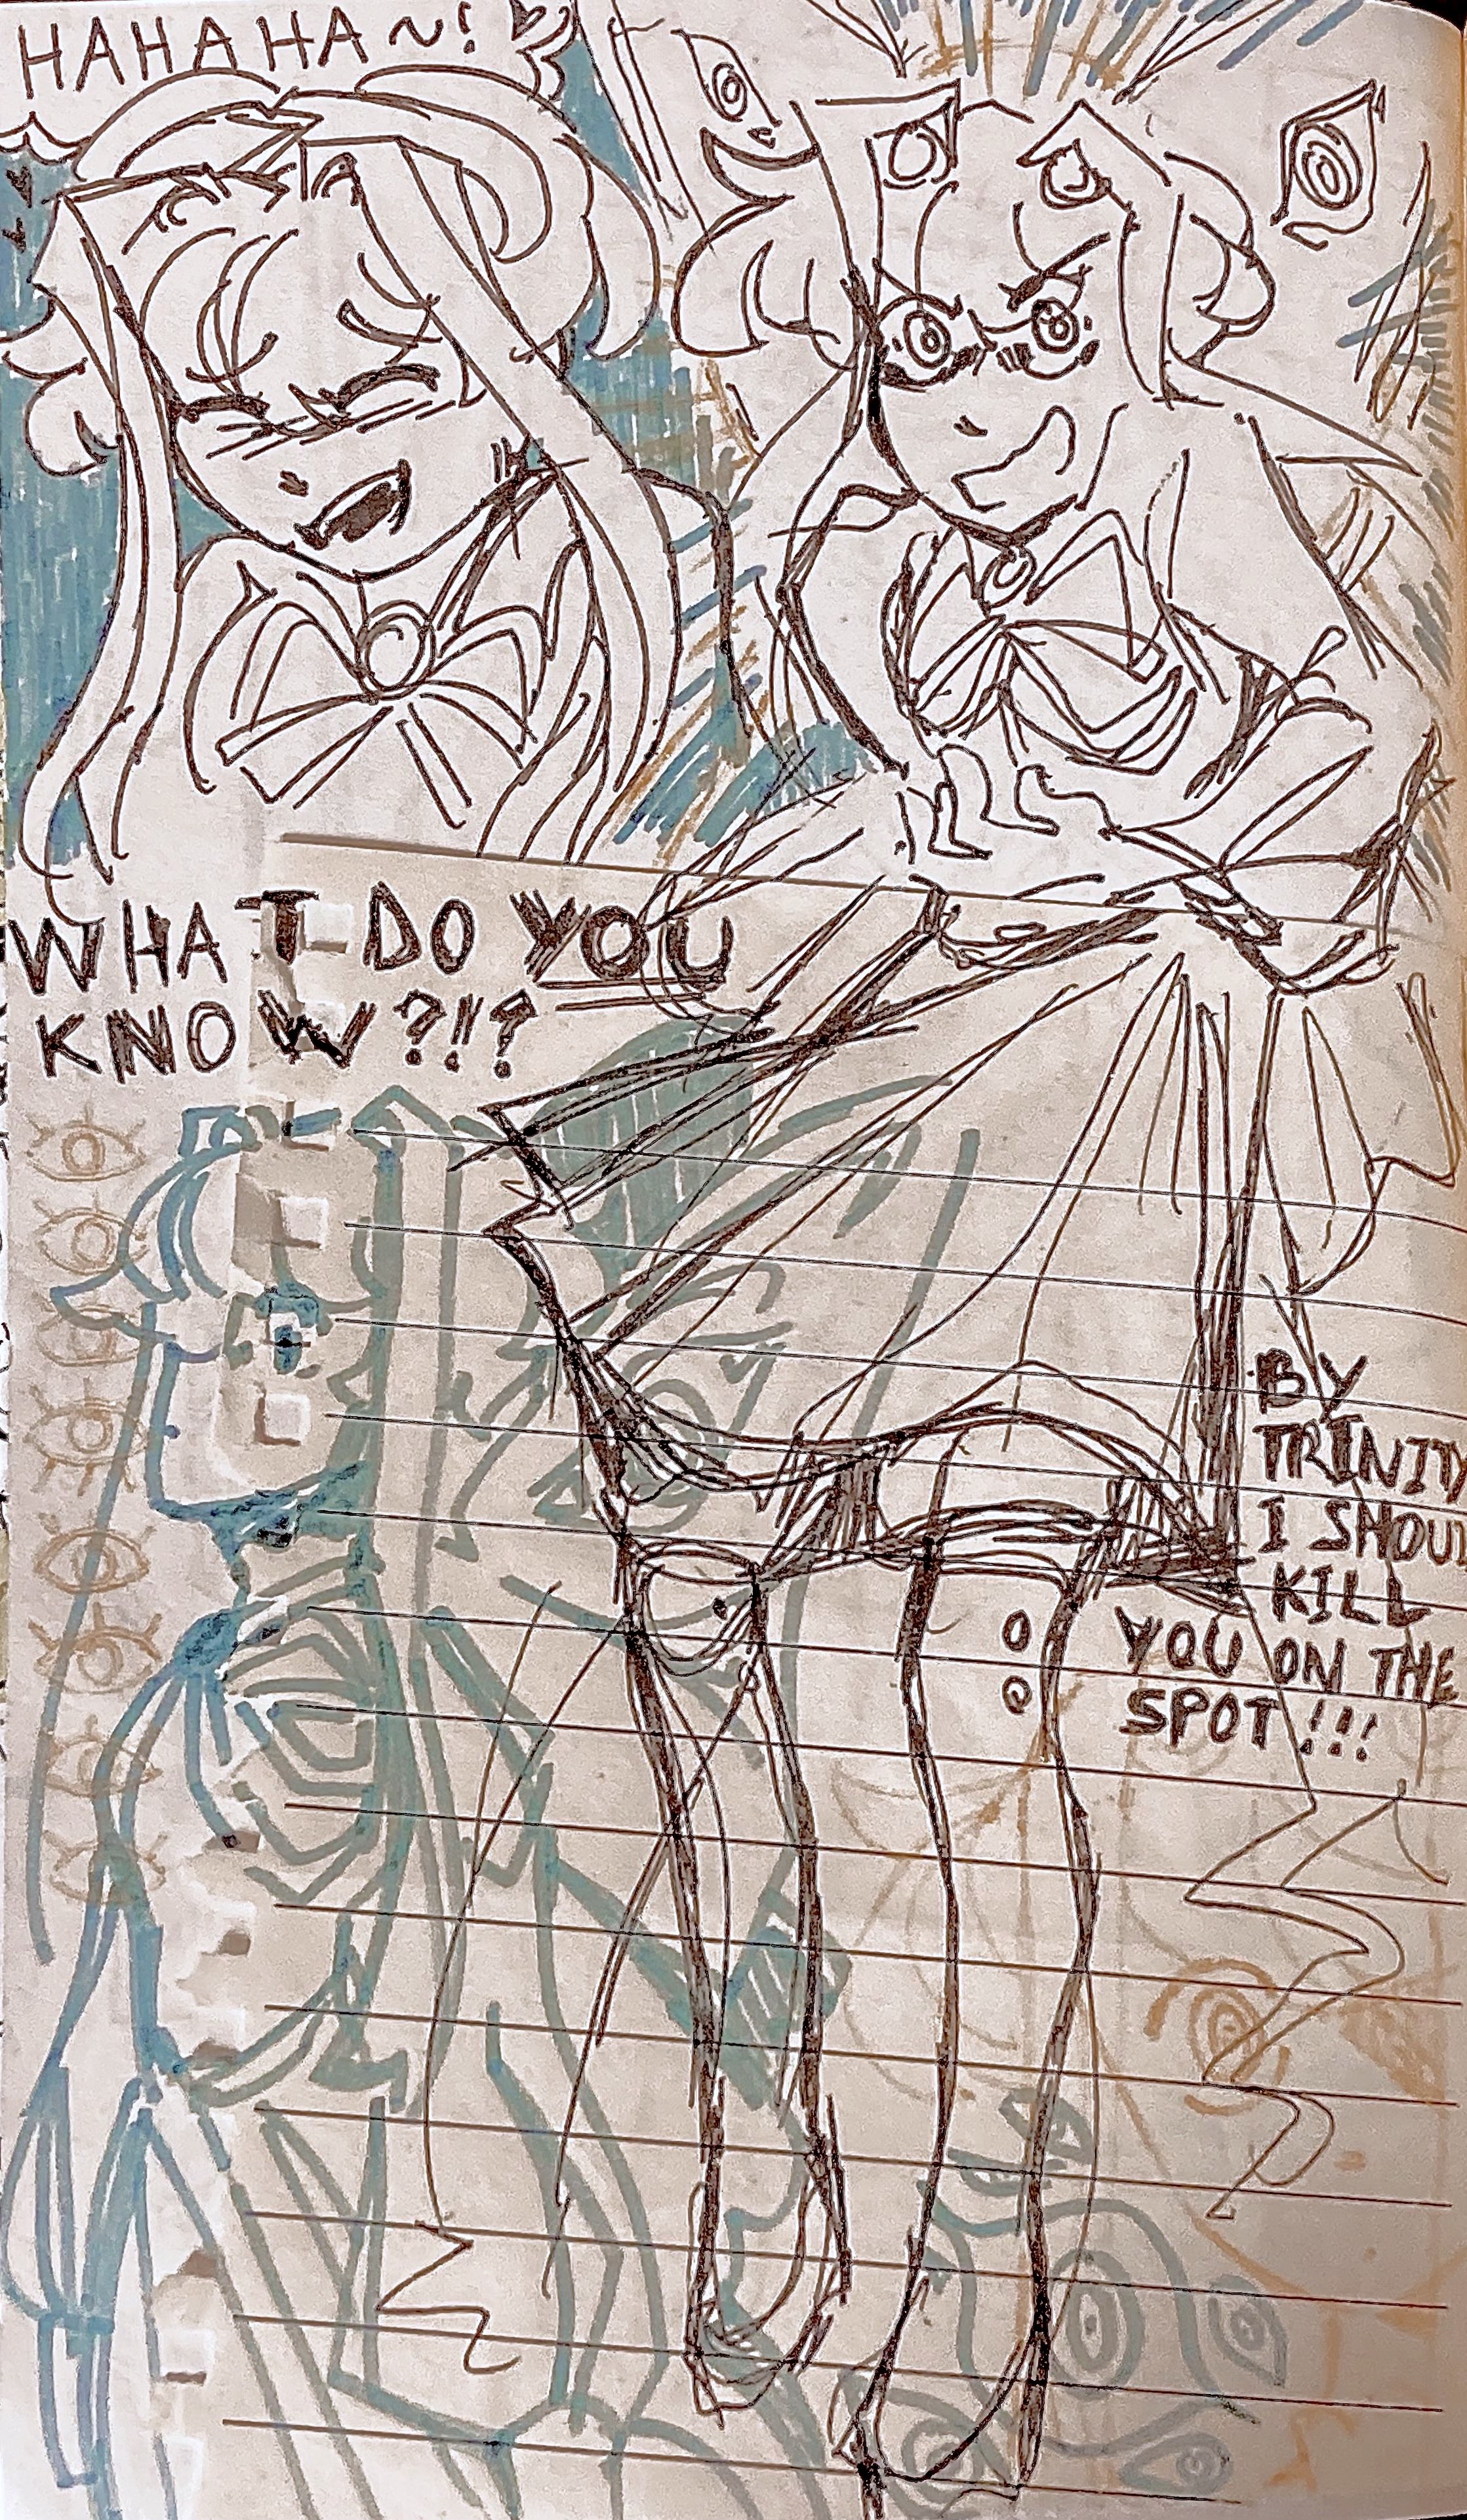 HAHAHA~!
WHAT DO YOU
KNOW?!!?
BY
TRINITY
I SHOUL
KILL
YOU ON THE
SPOT!!!